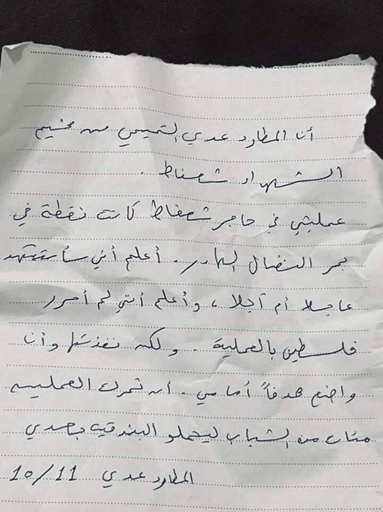 أنا المطارد عدي التميمي من مخيم
الشهداء شعفاط .
عمليتي في حاجز شعفاط كانت نقطة في
بحر النضال الهادر . أعلم أني سأستشهد
عاجلا أم آجلا ، وأعلم أنني لم أحرر
فلسطين بالعملية . ولكن نفذتها وأنا
واضع هدفاً أمامي . ان تحرك العملية
مئات من الشباب ليحملو البندقية بعدي
المطارد عدي 10/11